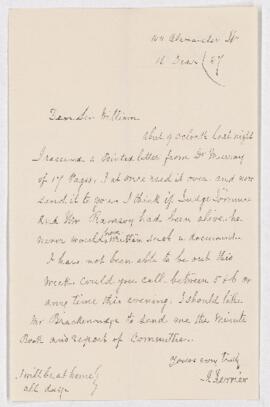 Alexander St
16 Dec / 87
Dear Sir William
About 9 o'clock last night
I received a printed letter from Dr Murray
of 17 Pages. I at once read it over and now
send it to you. I think if Judge
and Mr Ramsay had been alive he
never would have written such a document.
I have not been able to be out this
week. Could you call between 5 & 6 or
any time this evening. I should like
Mr Brackenridge to send me the Minute
Book and report of Committee.
Yours very truly
J. Ferrier
I will be at home
all day